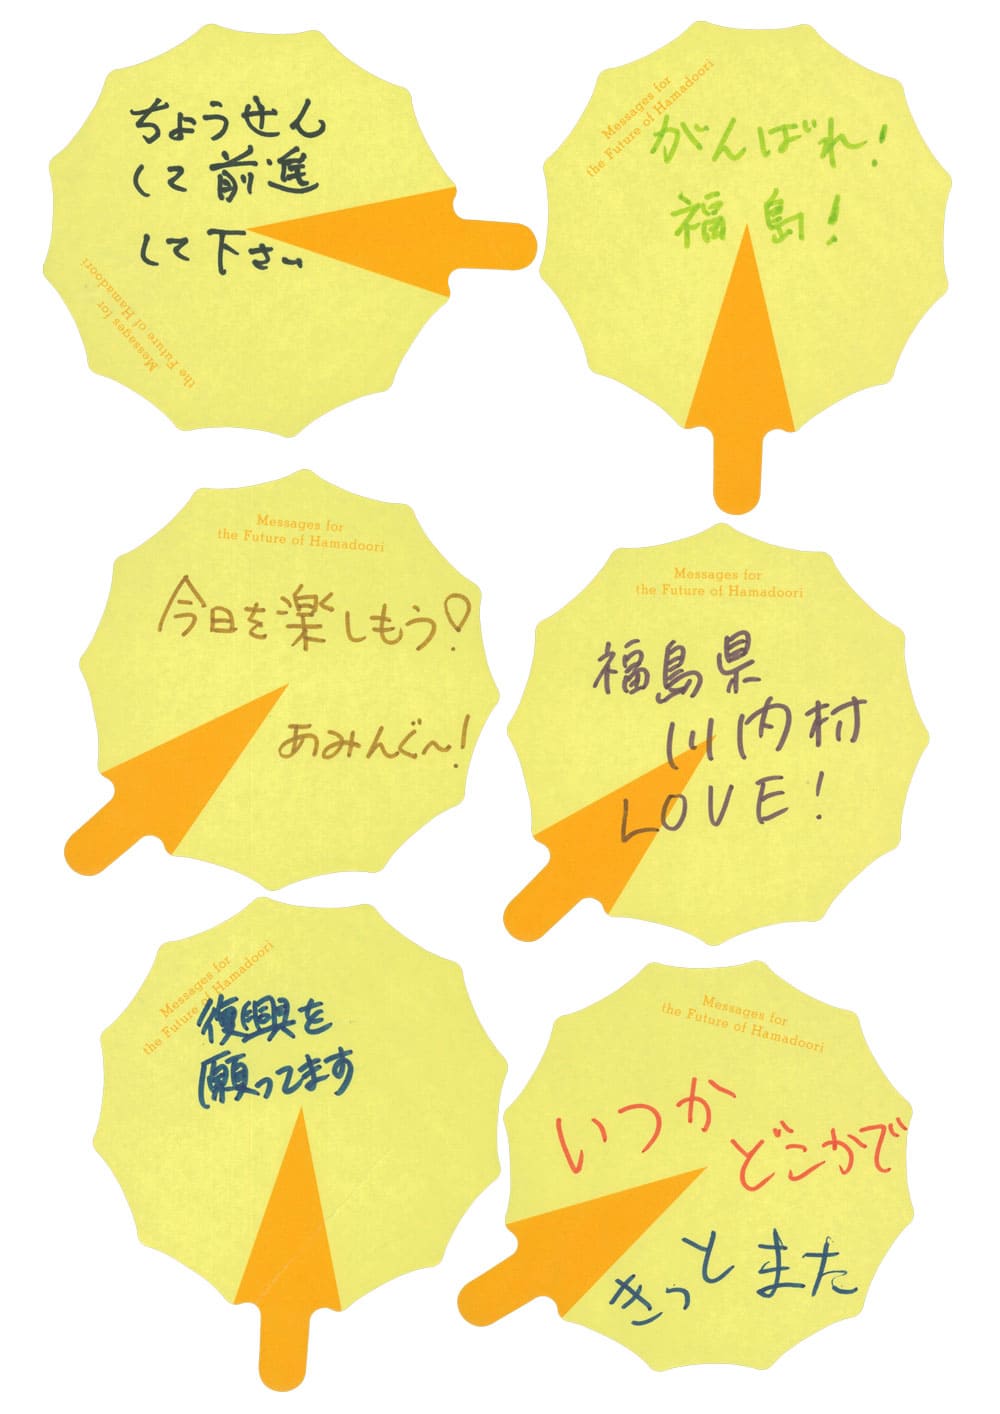 ちょうせん
して前進
して下さい
Messages for
the Future of Hamadoori
Messages for
the Future of Hamadoori
がんばれ!
福島!
Messages for
the Future of Hamadoori
今日を楽しもう!
あみんぐ〜!
Messages for
the Future of Hamadoori
福島県
川内村
LOVE!
Messages for
the Future of Hamadoori
復興を
願ってます
Messages for
the Future of Hamadoori
いつか
どこかで
きっとまた